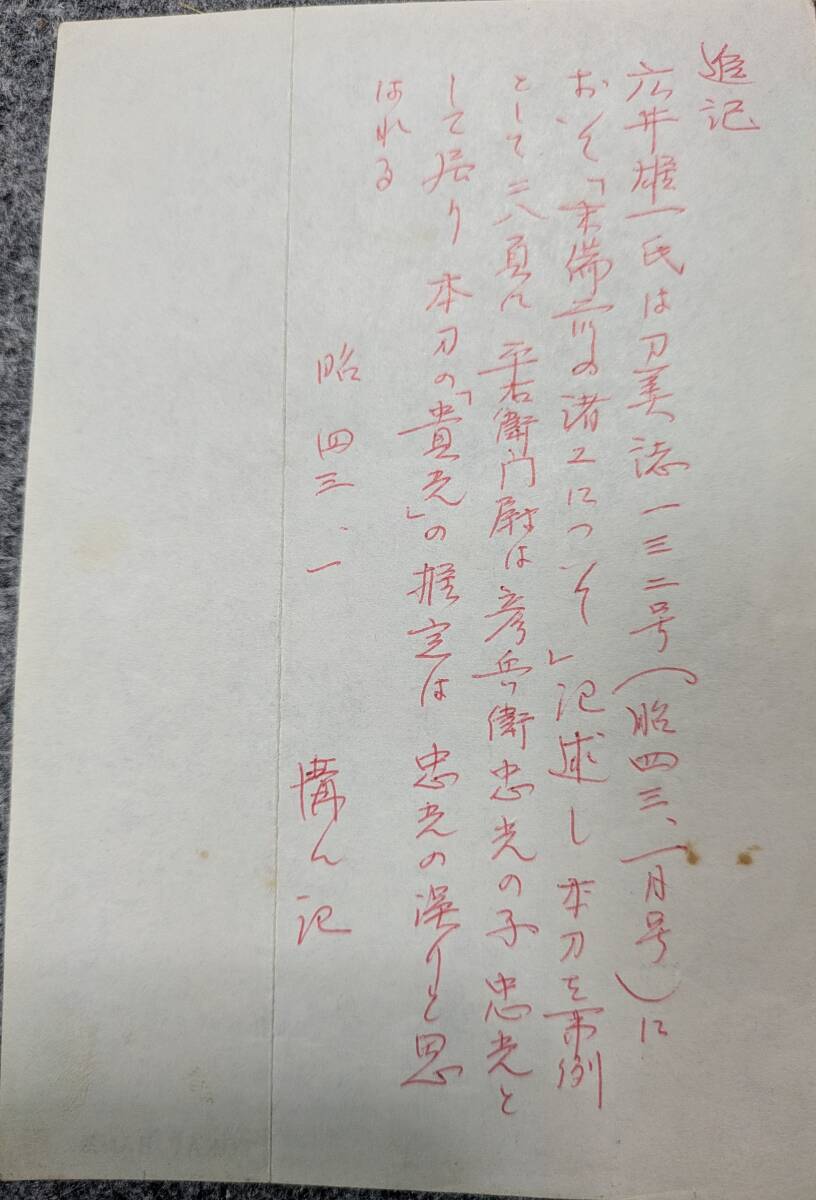 追記
広井雄一氏は刀美誌一三二号(昭四三、一月号)に
おいて「末備前の諸工について」記述し本刀を事例
として二八頁に平右衛門尉は彦兵衛忠光の子忠光と
して居り本刀の「貴光」の推定は忠光の誤りと思
はれる
昭四三、一
記